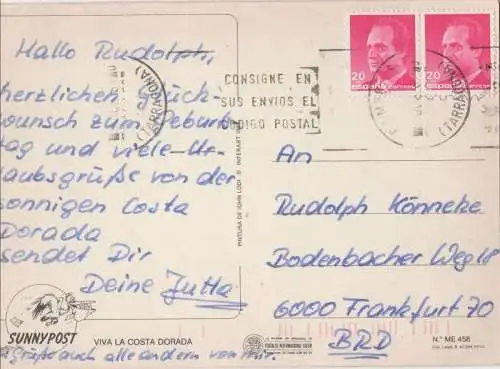 Hallo Rudolph,
herzlichen Glück-
wunsch zum Geburts
tag und viele Ur-
laubsgrüße von der
sonnigen Costa
Dorada
sendet Dir
Deine Jutta
Grüße auch alle andern von mir.
SUNNYPOST
VIVA LA COSTA DORADA
PINTURA DE JOHN LODI © INTERART
(TARRAGONA)
CONSIGNE EN
SUS ENVIOS EL
CODIGO POSTAL
20
ESPAÑA
20
ESPAÑA
(TARRAGONA)
An
Rudolph Könneke
Bodenbacher Weg 18
6000 Frankfurt 70
BRD
N.º ME 458